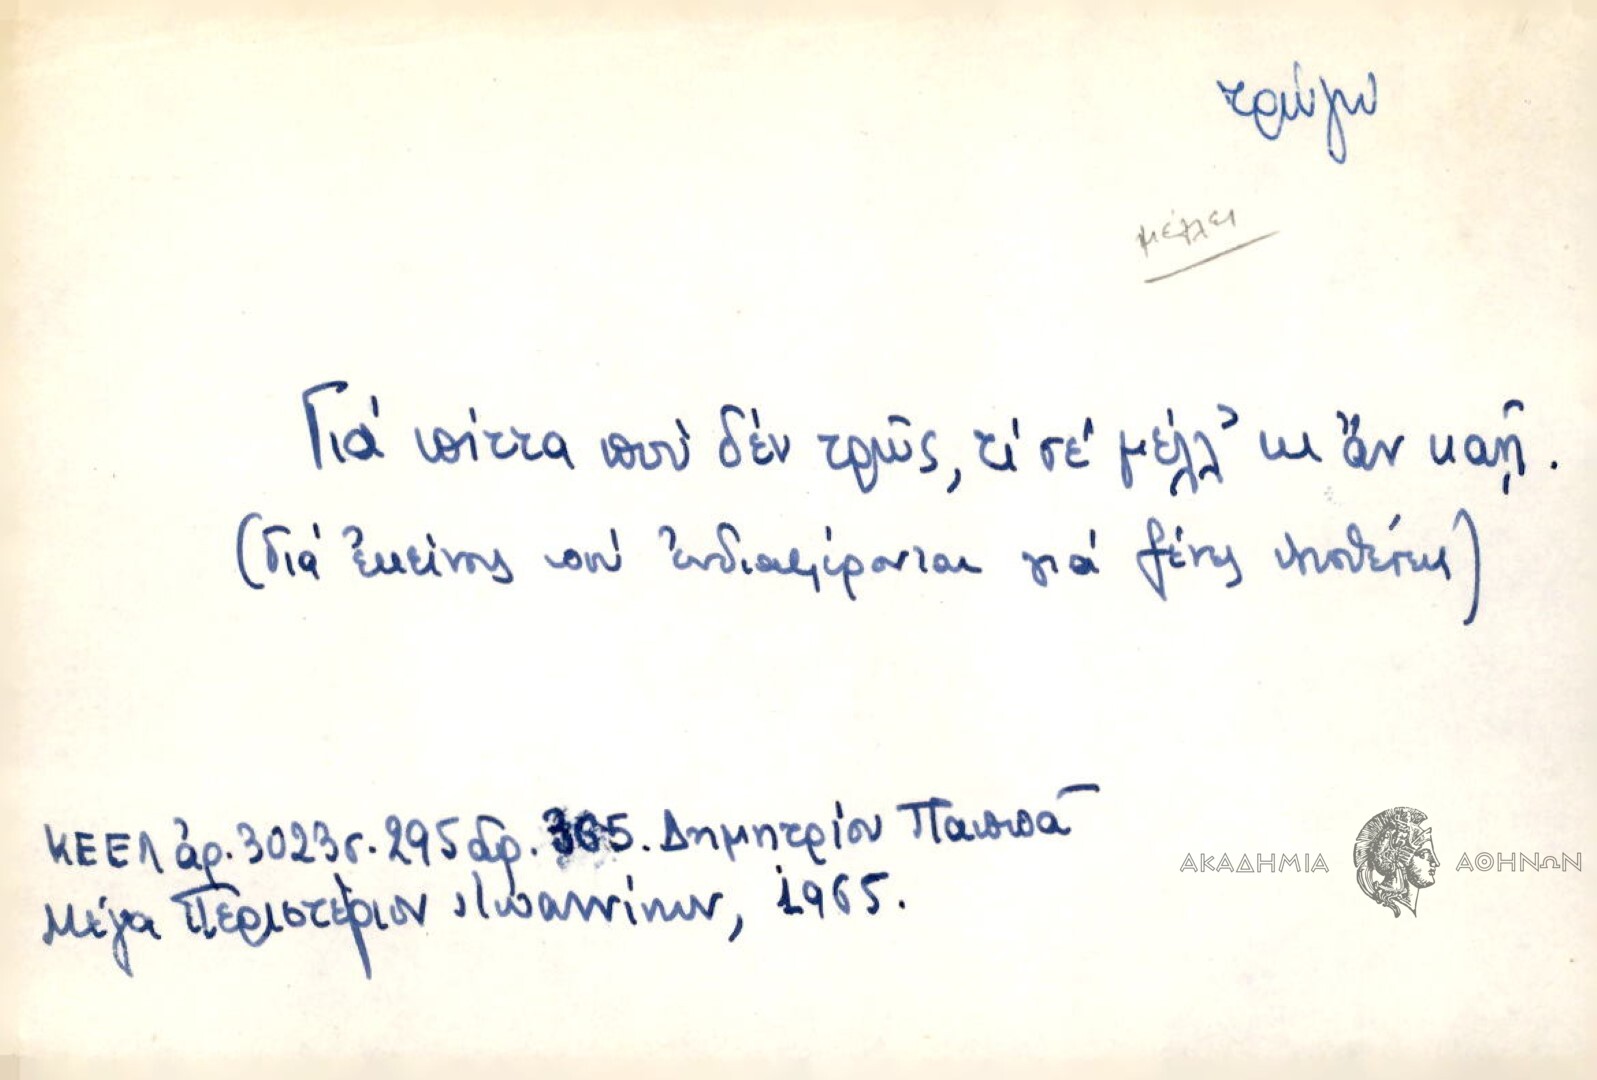 τρώγω
μέλλει
Γιά πίττα πού δέν τρῶς, τί σέ μέλλ' κι ἄν καῇ.
(διά ἐκείνους πού ἐνδιαφέρονται γιά ξένες ὑποθέσεις)
ΚΕΕΛ ἀρ. 3023 σ. 295 ἀρ. 365. Δημητρίου Παππᾶ
Μέγα Περιστέριον Ἰωαννίνων, 1965.
ΑΚΑΔΗΜΙΑ ΑΘΗΝΩΝ